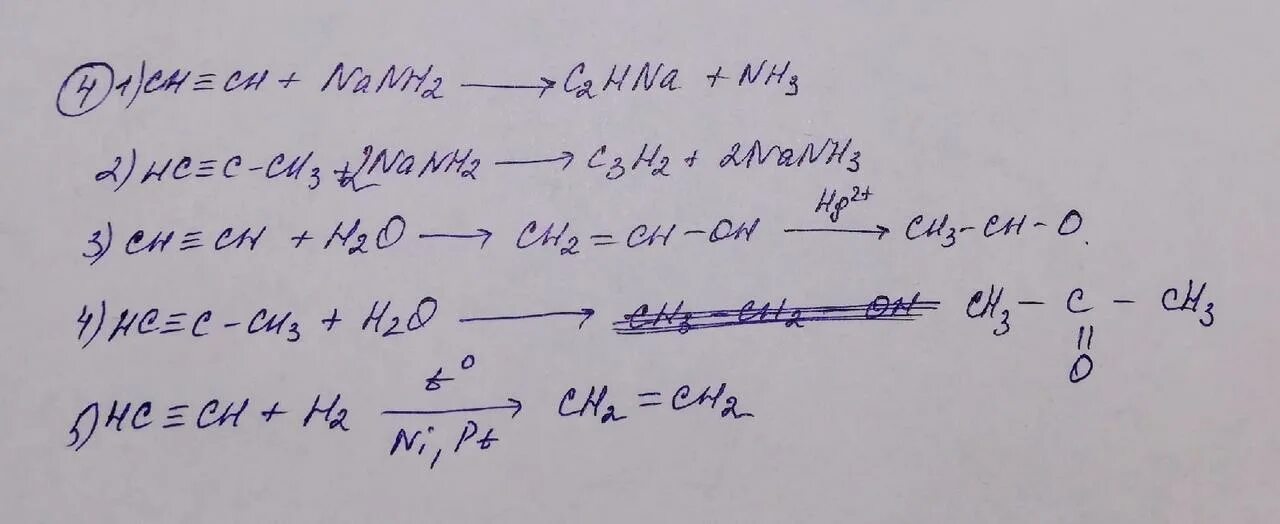 ④ 1) CH≡CH + NaNH2 ⟶ C2HNa + NH3
2) HC≡C-CH3 + 2NaNH2 ⟶ C3H2 + 2NaNH3
3) CH≡CH + H2O ⟶ CH2=CH-OH ⟶ Hg2+ CH3-CH-O.
4) HC≡C-CH3 + H2O ⟶ CH3-CH2-OH CH3-C-CH3
||
O
5) HC≡CH + H2 ⟶ t° Ni, Pt CH2=CH2